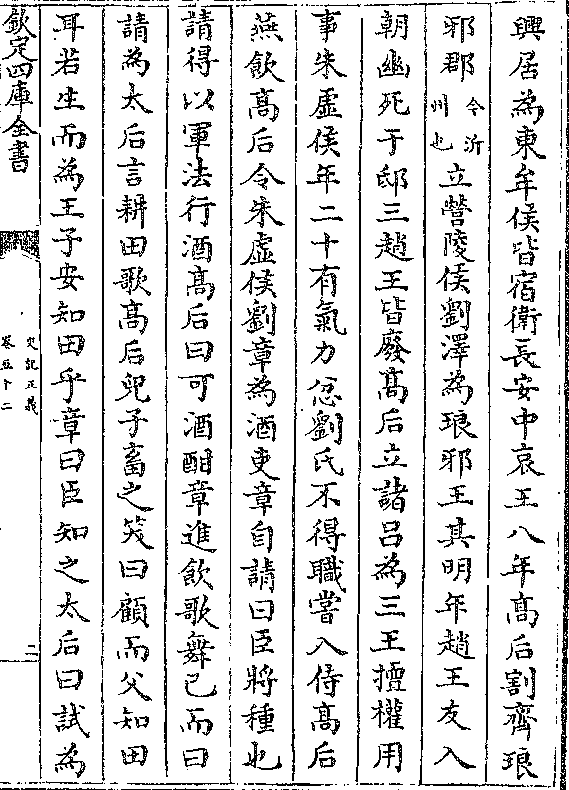 興居為東牟侯皆宿衛長安中哀王八年髙后割齊琅
邪郡今沂州也立營陵侯劉澤為琅邪王其明年趙王友入
朝幽死于邸三趙王皆廢髙后立諸吕為三王擅權用
事朱虚侯年二十有氣力忿劉氏不得職嘗入侍髙后
燕飲髙后令朱虚侯劉章為酒吏章自請曰臣將種也
請得以軍法行酒髙后曰可酒酣章進飲歌舞已而曰
請為太后言耕田歌髙后兒子畜之笑曰顧而父知田
耳若生而為王子安知田乎章曰臣知之太后曰試為
欽定四庫全書
史記正義
卷五十二
二